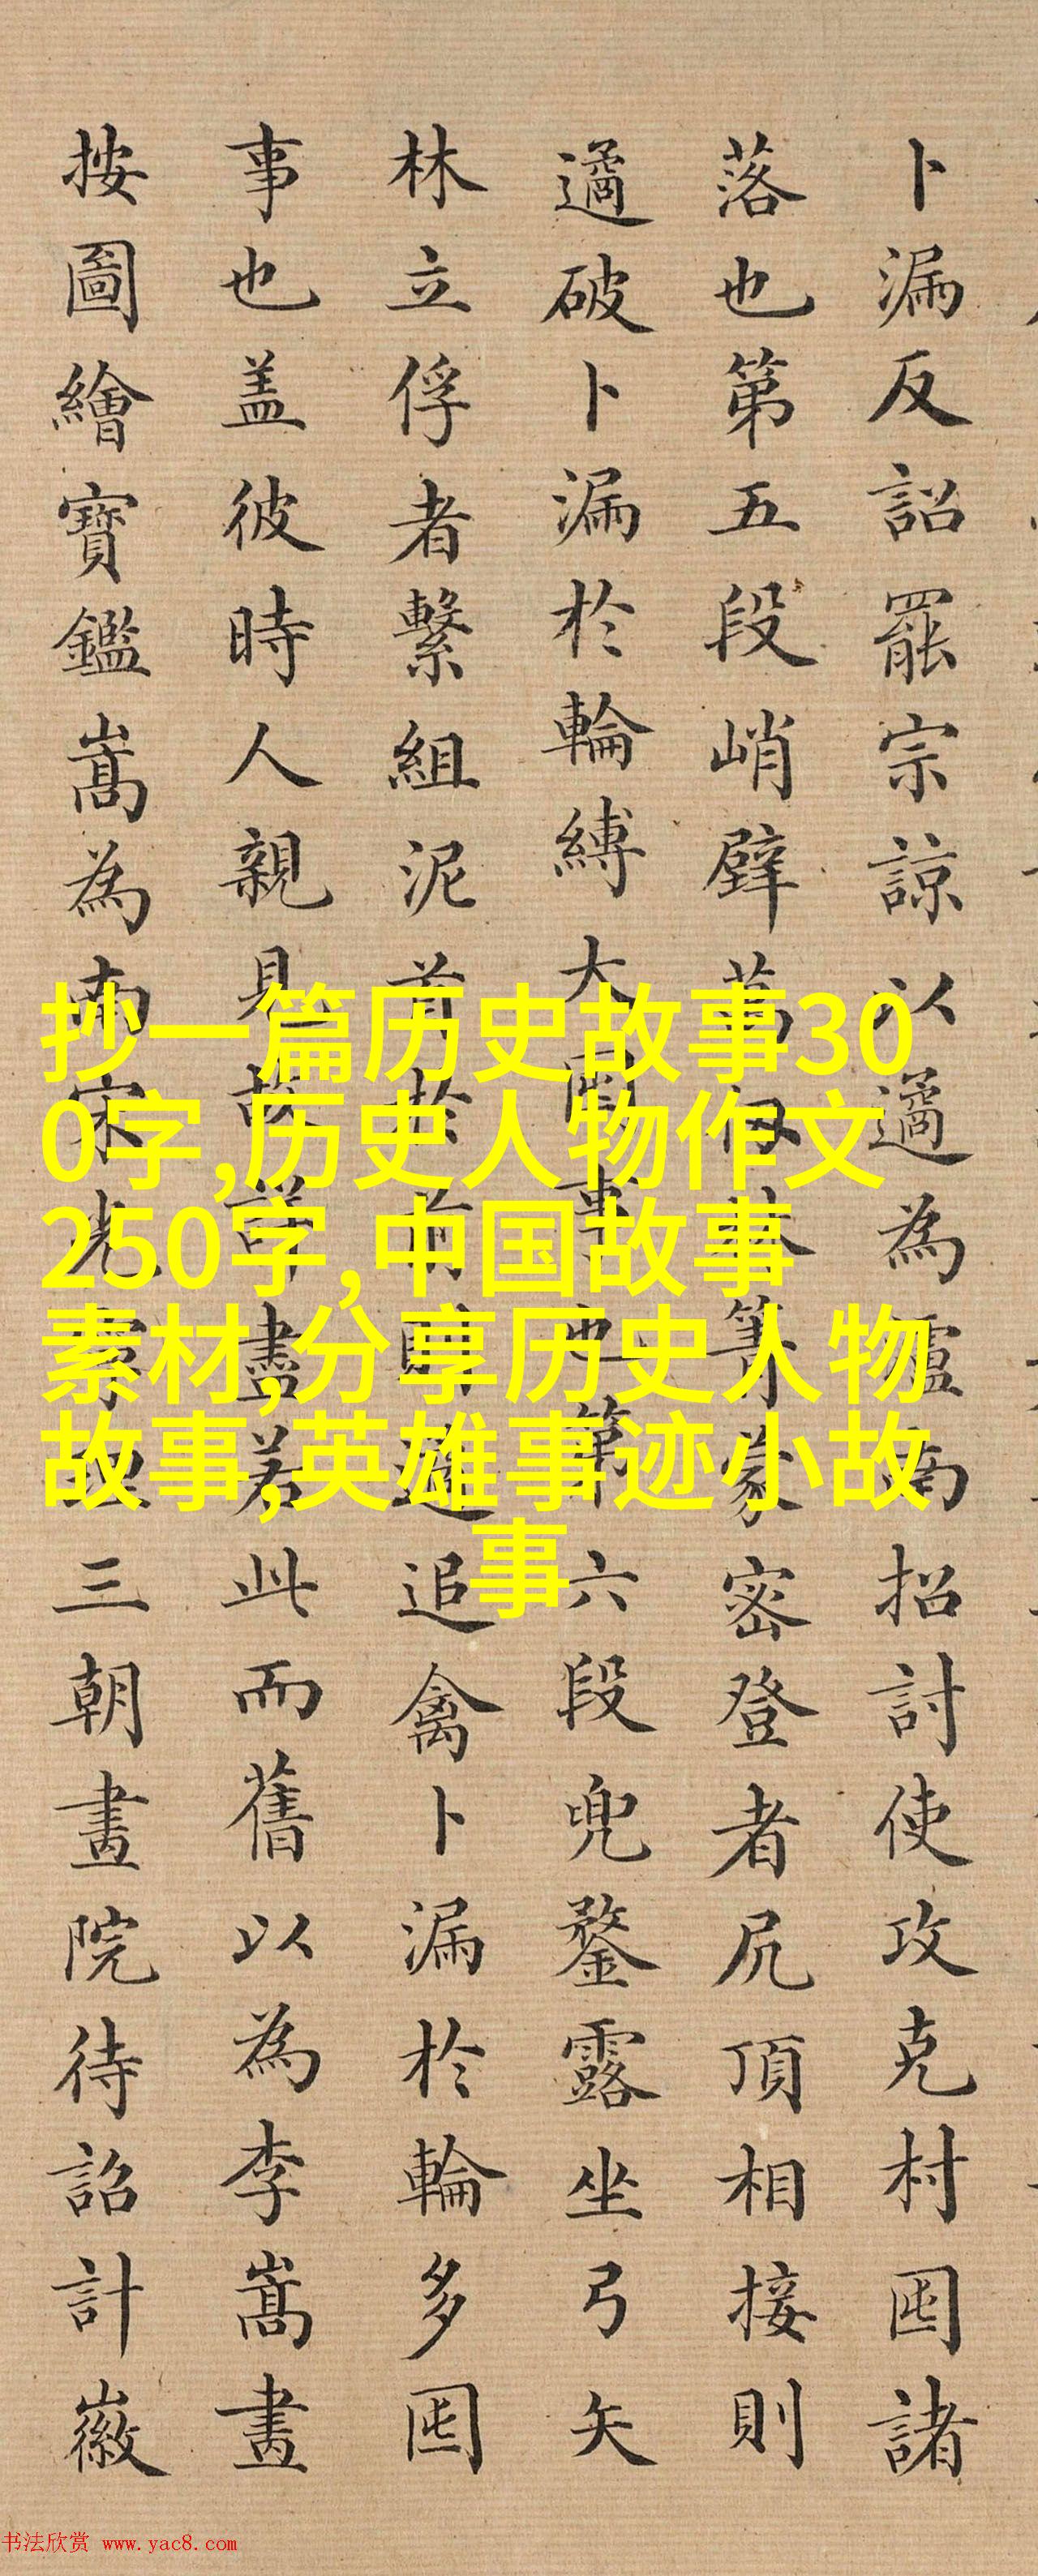 卜漏反詔罷宗諒以遹為瀘南招討使攻克村囤諸
落也第五段峭壁萬仞林箐蒙密登者尻頂相接則
遹破卜漏於輪縛大囤事也第六段兜鍪露坐弓矢
林立俘者繫組泥首於前則遹追禽卜漏於輪多囤
事也盖彼時人親見故詳盡若此而舊以為李嵩畫
按圖繪寶鑑嵩為南宋光寧理三朝畫院待詔計徽
抄一篇历史故事30
0字,历史人物作文
250字,中国故事
素材,分享历史人物
故事,英雄事迹小故
事
书法欣赏 www.yac8.com